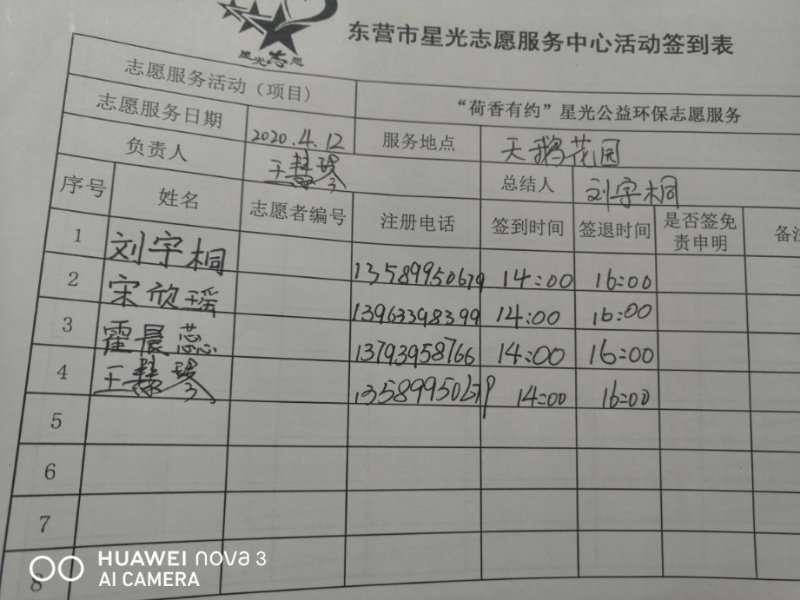 东营市星光志愿服务中心活动签到表
星光志愿
志愿服务活动（项目） “荷香有约”星光公益环保志愿服务
志愿服务日期 2020.4.12 服务地点 天鹅花园
负责人 王慧 总结人 刘宇桐
序号 姓名 志愿者编号 注册电话 签到时间 签退时间 是否签免责申明 备注
1 刘宇桐 13589950679 14:00 16:00
2 宋欣瑶 13963398399 14:00 16:00
3 霍晨蕊 13793958766 14:00 16:00
4 王慧 13589950679 14:00 16:00
5
6
7
8
HUAWEI nova 3
AI CAMERA